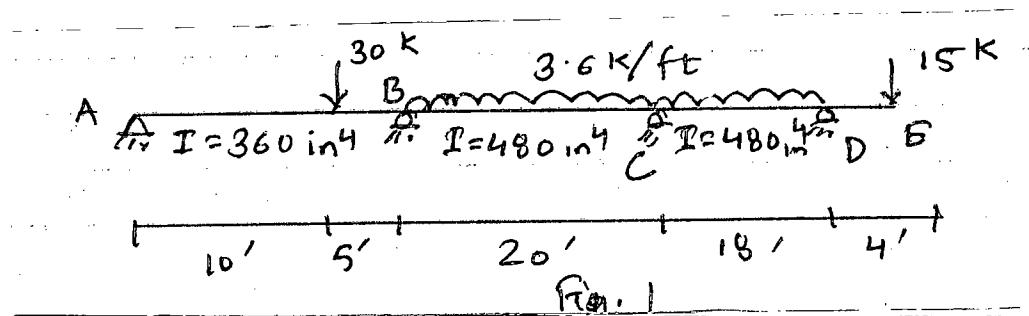 30 K
3.6 K/ft
15 K
A
B
I = 360 in4
I=480in4
C
I=480in4
D
E
10'
5'
20'
18'
4'
Fig. 1